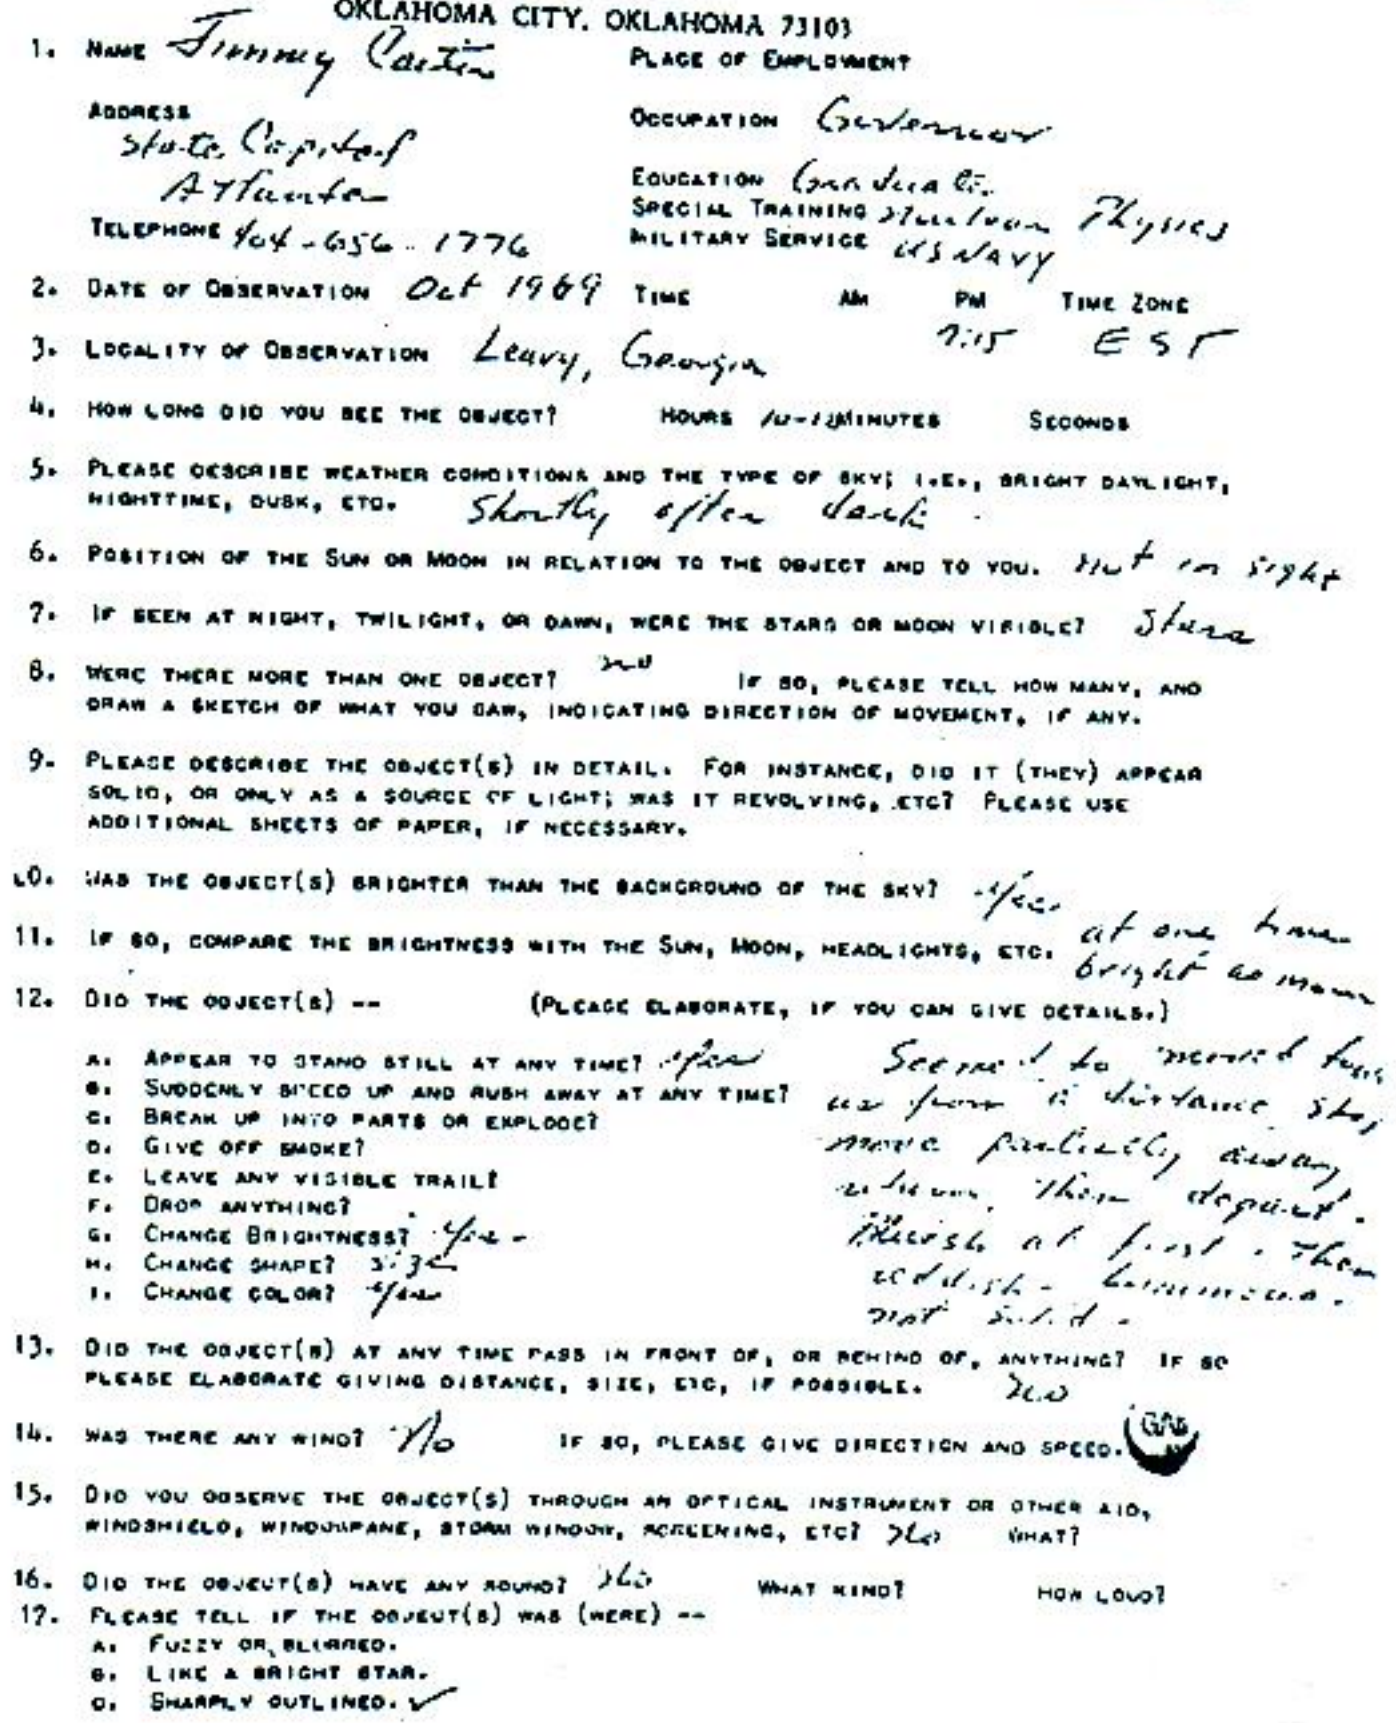 OKLAHOMA CITY, OKLAHOMA 73103
1. NAME Jimmy Carter PLACE OF EMPLOYMENT
ADDRESS OCCUPATION Governor
State Capitol
Atlanta EDUCATION Graduate
SPECIAL TRAINING Nuclear Physics
TELEPHONE 404-656-1776 MILITARY SERVICE US NAVY
2. DATE OF OBSERVATION Oct 1969 TIME AM PM TIME ZONE
7:15 EST
3. LOCALITY OF OBSERVATION Leary, Georgia
4. HOW LONG DID YOU SEE THE OBJECT? HOURS 10-12 MINUTES SECONDS
5. PLEASE DESCRIBE WEATHER CONDITIONS AND THE TYPE OF SKY; I.E., BRIGHT DAYLIGHT,
NIGHTTIME, DUSK, ETC. Shortly after dark.
6. POSITION OF THE SUN OR MOON IN RELATION TO THE OBJECT AND TO YOU. Not in sight
7. IF SEEN AT NIGHT, TWILIGHT, OR DAWN, WERE THE STARS OR MOON VISIBLE? Stars
8. WERE THERE MORE THAN ONE OBJECT? no IF SO, PLEASE TELL HOW MANY, AND
DRAW A SKETCH OF WHAT YOU SAW, INDICATING DIRECTION OF MOVEMENT, IF ANY.
9. PLEASE DESCRIBE THE OBJECT(S) IN DETAIL. FOR INSTANCE, DID IT (THEY) APPEAR
SOLID, OR ONLY AS A SOURCE OF LIGHT; WAS IT REVOLVING, ETC? PLEASE USE
ADDITIONAL SHEETS OF PAPER, IF NECESSARY.
10. WAS THE OBJECT(S) BRIGHTER THAN THE BACKGROUND OF THE SKY? yes
11. IF SO, COMPARE THE BRIGHTNESS WITH THE SUN, MOON, HEADLIGHTS, ETC. at one time
bright as moon
12. DID THE OBJECT(S) -- (PLEASE ELABORATE, IF YOU CAN GIVE DETAILS.)
A. APPEAR TO STAND STILL AT ANY TIME? yes
B. SUDDENLY SPEED UP AND RUSH AWAY AT ANY TIME?
C. BREAK UP INTO PARTS OR EXPLODE?
D. GIVE OFF SMOKE?
E. LEAVE ANY VISIBLE TRAIL?
F. DROP ANYTHING?
G. CHANGE BRIGHTNESS? yes
H. CHANGE SHAPE? size
I. CHANGE COLOR? yes
Seemed to move
us from a distance, stop,
move partially away,
return, then depart.
Bluish at first. Then
reddish - luminous.
not solid.
13. DID THE OBJECT(S) AT ANY TIME PASS IN FRONT OF, OR BEHIND OF, ANYTHING? IF SO
PLEASE ELABORATE GIVING DISTANCE, SIZE, ETC, IF POSSIBLE. no
14. WAS THERE ANY WIND? No IF SO, PLEASE GIVE DIRECTION AND SPEED.
15. DID YOU OBSERVE THE OBJECT(S) THROUGH AN OPTICAL INSTRUMENT OR OTHER AID,
WINDSHIELD, WINDOWPANE, STORM WINDOW, SCREENING, ETC? No WHAT?
16. DID THE OBJECT(S) HAVE ANY SOUND? No WHAT KIND? HOW LOUD?
17. PLEASE TELL IF THE OBJECT(S) WAS (WERE) --
A. FUZZY OR BLURRED.
B. LIKE A BRIGHT STAR.
C. SHARPLY OUTLINED. ✓